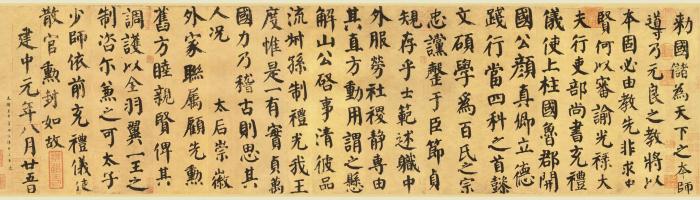 勅國儲為天下之本師
導乃元良之教將以
本固必由教先非求中
賢何以審諭光祿大
夫行吏部尚書充禮
儀使上柱國魯郡開
國公顏真卿立德
踐行當四科之首懿
文碩學為百氏之宗
忠讜罄于臣節貞
規存乎士範述職中
外服勞社稷靜專由
其直方動用謂之懸
解山公啓事清彼品
流叔孫制禮光我王
度惟是一有實貞萬
國力乃稽古則思其
人況 太后崇徽
外家聯属顧先勲
舊方睦親賢俾其
調護以全羽翼一王之
制咨尔兼之可太子
少師依前充禮儀使
散官勲封如故
建中元年八月廿五日